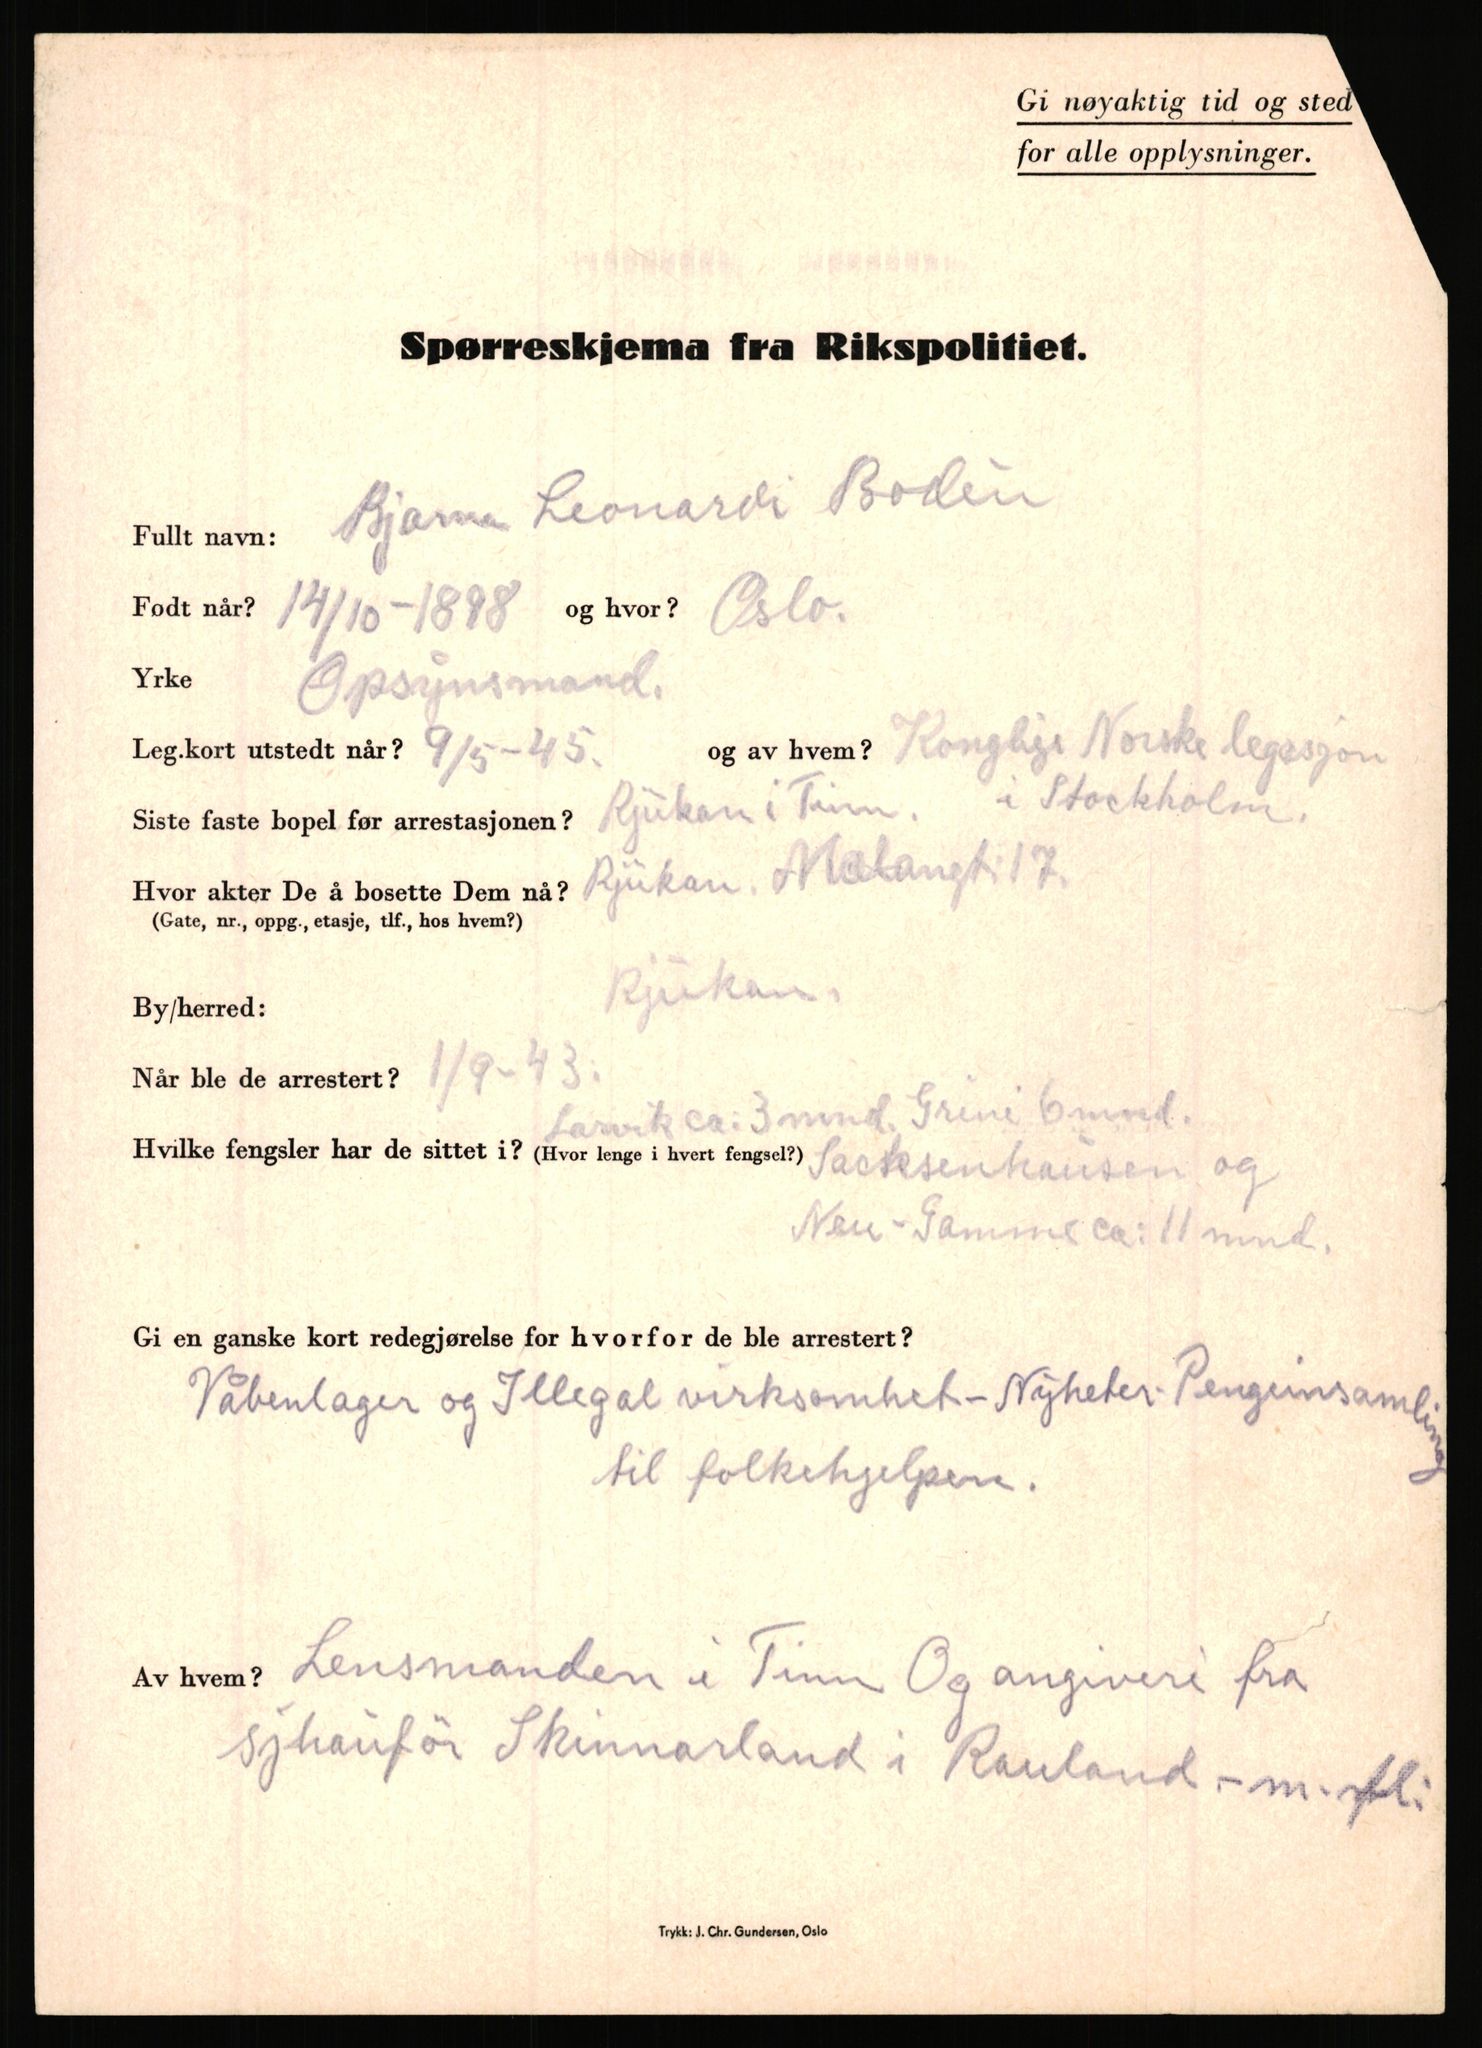 Gi nøyaktig tid og sted
for alle opplysninger.
Spørreskjema fra Rikspolitiet.
Fullt navn: Bjarne Leonardi Bodin
Født når? 14/10-1898 og hvor? Oslo.
Yrke Opsynsmand.
Leg.kort utstedt når? 9/5-45. og av hvem? Konglige Norske legasjon
i Stockholm.
Siste faste bopel før arrestasjonen? Rjukan i Tinn.
Hvor akter De å bosette Dem nå? Rjukan. 17.
(Gate, nr., oppg., etasje, tlf., hos hvem?)
By/herred: Rjukan.
Når ble de arrestert? 1/9-43.
Larvik ca: 3 mnd. Grini 6 mnd.
Hvilke fengsler har de sittet i? (Hvor lenge i hvert fengsel?) Sacksenhausen og
Neu-Gamme ca: 11 mnd.
Gi en ganske kort redegjørelse for hvorfor de ble arrestert?
Våbenlager og Illegal virksomhet-Nyheter-Pengeinsamling
til folkehjelpen.
Av hvem? Lensmanden i Tinn Og angiveri fra
Skinnarland i Rauland - m. fl:
Trykk: J. Chr. Gundersen, Oslo